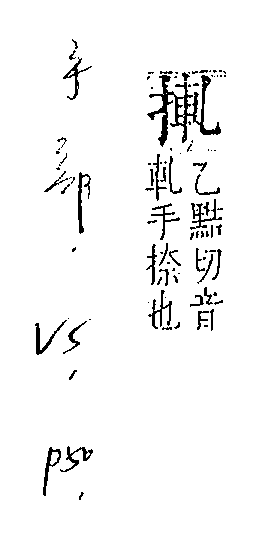 乙黠切音
軋手捺也
手部. V5, P50,